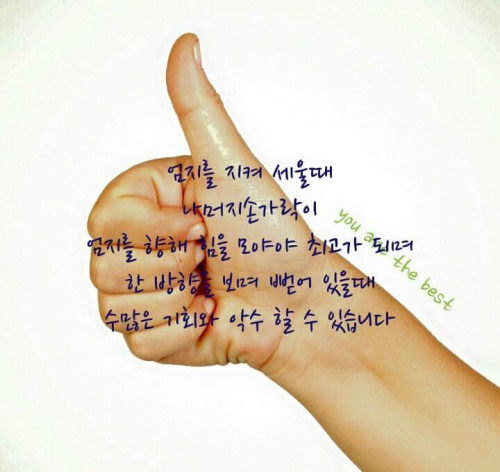 엄지를 지켜 세울때
나머지손가락이
엄지를 향해 힘을 모아야 최고가 되며
한 방향을 보며 뻗어 있을때
수많은 기회와 악수 할 수 있습니다
you are the best